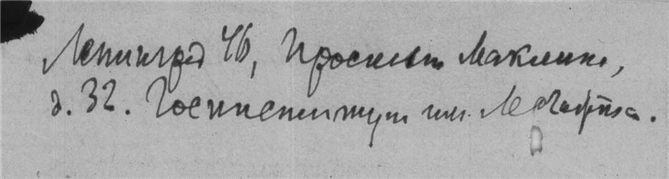 Ленинград 46, Проспект Маклина,
д. 32. Госинститут им. Лесгафта.